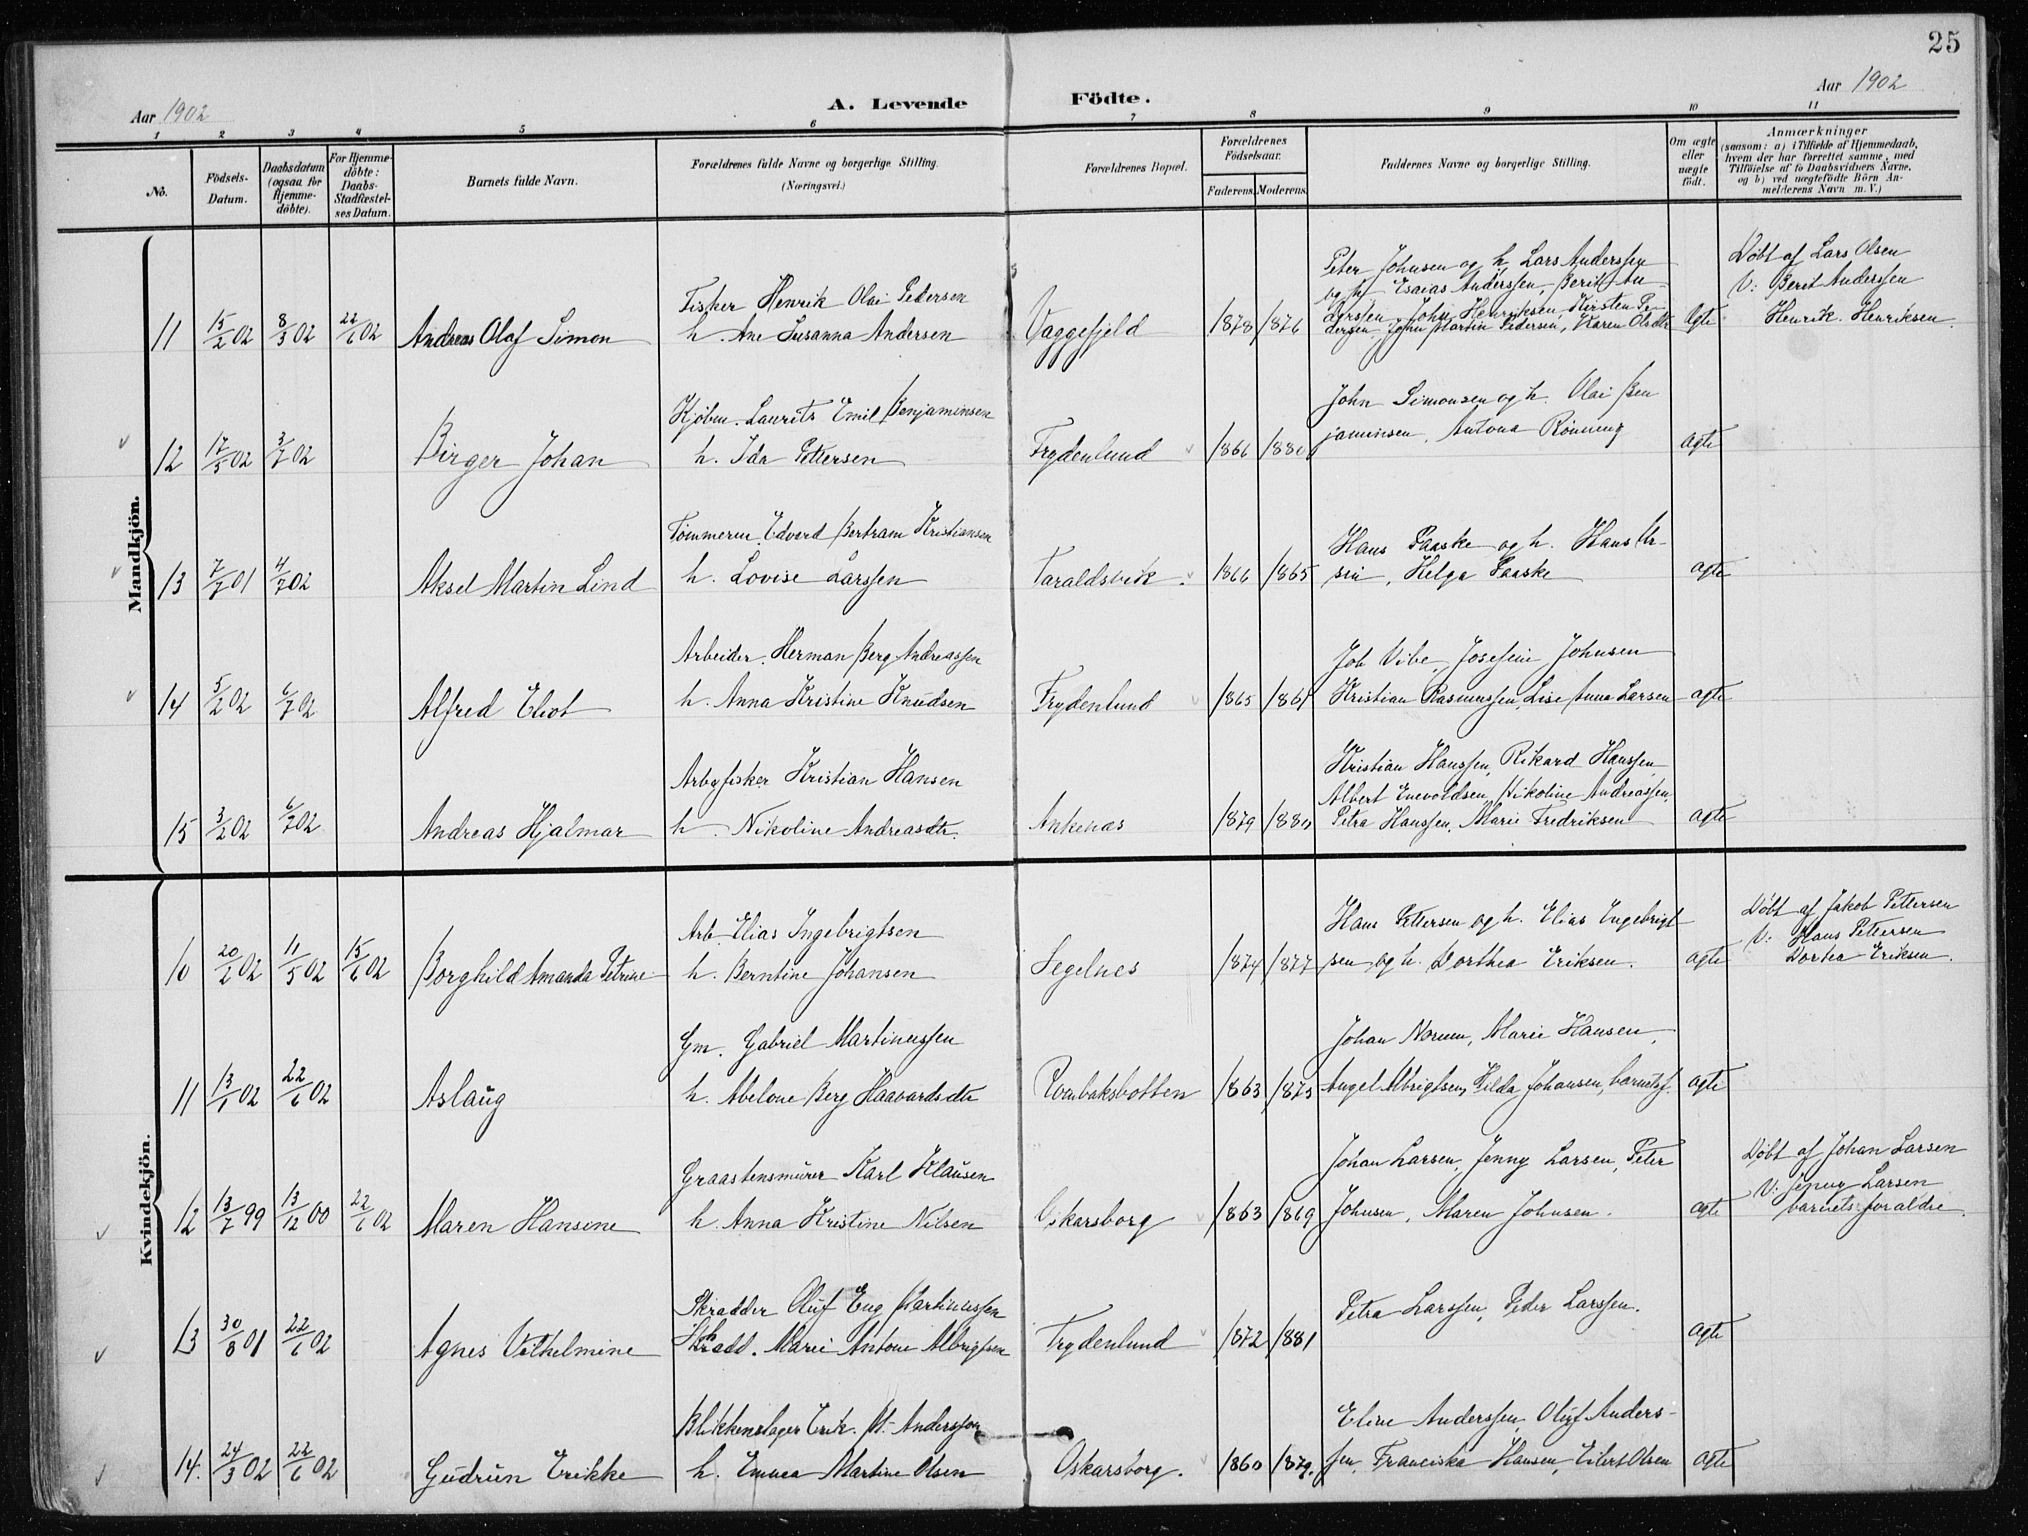 25
Aar 1902
A. Levende Födte.
Aar 1902
1 2 3 4 5 6 7 8 9 10 11
No.
Födsels-Datum.
Daabsdatum (ogsaa for Hjemme-döbte).
For Hjemme-döbte: Daabs-Stadfæstel-ses Datum.
Barnets fulde Navn.
Forældrenes fulde Navne og borgerlige Stilling.
(Næringsvei.)
Forældrenes Bopæl.
Forældrenes Födselsaar.
Faderens. Moderens.
Faddernes Navne og borgerlige Stilling.
Om ægte eller uægte födt.
Anmærkninger
(saasom: a) i Tilfælde af Hjemmedaab,
hvem der har forrettet samme, med
Tilföielse af to Daabsvidners Navne,
og b) ved uægtefödte Börn An-
melderens Navn m. V.)
Mandkjön.
11 15/2 02 8/3 02 22/6 02 Andreas Olaf Simon
Fisker Henrik Olai Pedersen
h. Ane Susanna Andersen
Vaggefjeld 1878 1876
Peter Johnsen og h. Lars Anderssen
og h. Esaias Anderssen, Berit An-
derssen, John Henriksen, Kirsten Pe-
dersen, John Martin Pedersen, Karen Olsdtr
Ægte
Døbt af Lars Olsen
V: Berit Anderssen
Henrik Henriksen.
12 17/5 02 3/7 02 Birger Johan
Kjøbm. Laurits Emil Benjaminsen
h. Ida Pettersen
Frydenlund 1866 1880
John Simonsen og h. Olai Ben
jaminsen, Antona Rønning
ægte
13 7/7 01 4/7 02 Aksel Martin Lind
Tømmerm. Edvard Bertram Kristiansen
h. Lovise Larssen
Taraldsvik. 1866 1865
Hans Paaske og h. Hans Ur-
sin, Helga Paaske
ægte
14 5/2 02 6/7 02 Alfred Eliot
Arbeider. Herman Berg Andreassen
h. Anna Kristine Knudsen
Frydenlund 1865 1861
Job Vibe, Josefine Johnsen
Kristian Rasmussen, Lise Anna Larsen
ægte
15 3/2 02 6/7 02 Andreas Hjalmar
Arb og fisker Kristian Hansen
h. Nikoline Andreasdtr.
Ankenæs 1879 1880
Kristian Hanssen, Rikard Hanssen
Albert Enevoldsen, Nikoline Andreassen,
Petra Hanssen, Marie Fredriksen
ægte
Kvindekjön.
10 20/2 02 11/5 02 15/6 02 Borghild Amanda Petrine
Arb. Elias Ingebrigtsen
h. Berntine Johansen
Segelnes 1874 1877
Hans Pettersen og h. Elias Engebrigt
sen og h. Dorthea Eriksen.
ægte
Døbt af Jakob Pettersen
V: Hans Pettersen
Dortea Eriksen.
11 13/1 02 22/6 02 Aslaug
Gm. Gabriel Martinussen
h. Abelone Berg Haavardsdtr
Rombaksbotten 1863 1875
Johan Norum, Marie Hansen,
Angel Albrigtsen, Hilda Johansen, barnets f.
ægte
12 13/7 99 13/12 00 22/6 02 Maren Hansine
Graastensmurer Karl Klausen
h. Anna Kristine Nilsen
Oskarsborg 1863 1869
Johan Larsen, Jenny Larsen, Peter
Johnsen, Maren Johnsen.
ægte
Døbt af Johan Larsen
V: Jenny Larsen
barnets forældre.
13 30/8 01 22/6 02 Agnes Vilhelmine
Skrædder Oluf Eug. Martinussen
h. Marie Antone Albrigtsen
Frydenlund 1872 1881
Petra Larssen, Peder Larssen.
ægte
14. 24/3 02 22/6 02 Gudrun Erikke
Blikkenslager Erik. M. Andersson
h. Emma Martine Olsen
Oskarsborg. 1860 1879.
Eline Anderssen, Oluf Anders-
sen, Franciska Hansen, Eilert Olsen
ægte